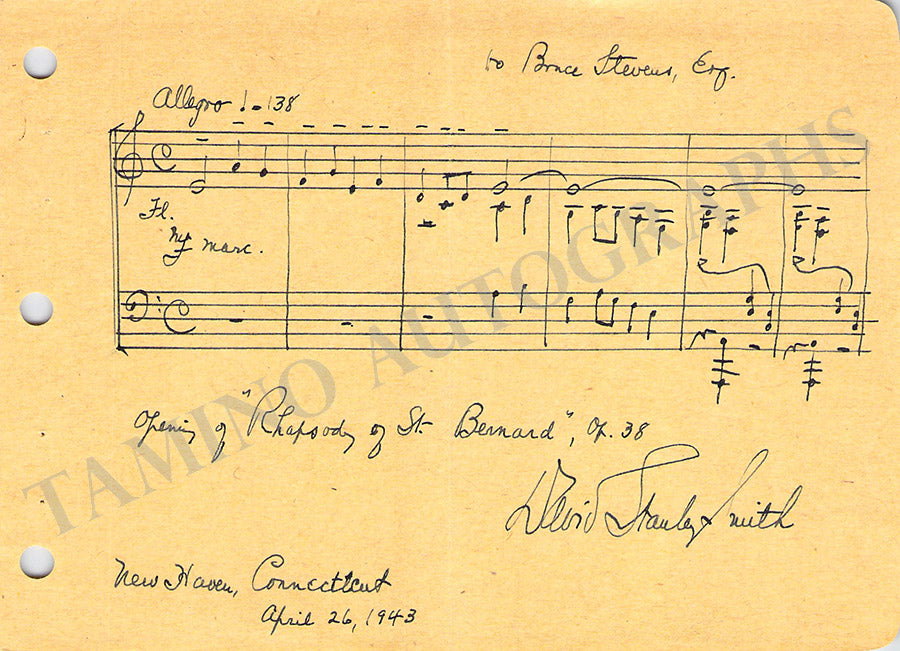 to Bruce Stevens, Esq.
Allegro - 138
Fl.
mf marc.
Opening of "Rhapsody of St. Bernard", Op. 38
David Stanley Smith
New Haven, Connecticut
April 26, 1943
TAMINO AUTOGRAPHS